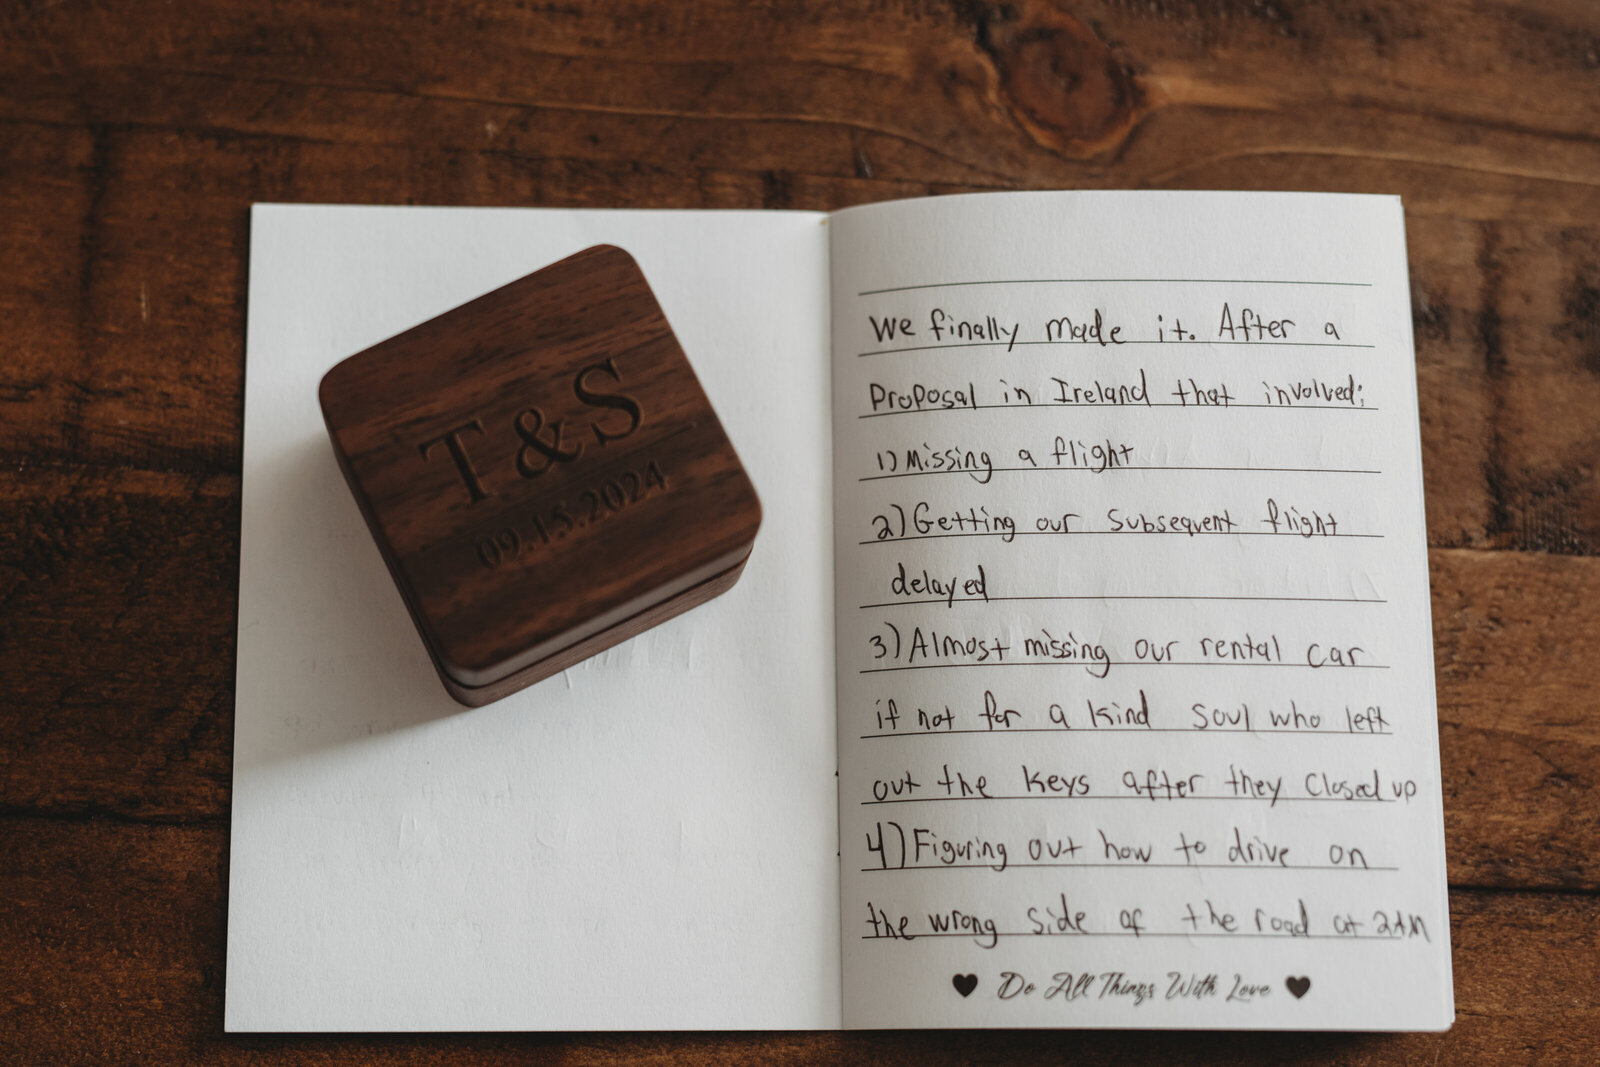 T&S
09.15.2024
We finally made it. After a
Proposal in Ireland that involved:
1) Missing a flight
2) Getting our subsequent flight
delayed
3) Almost missing our rental car
if not for a kind soul who left
out the keys after they closed up
4) Figuring out how to drive on
the wrong side of the road at 2AM
Do All Things With Love